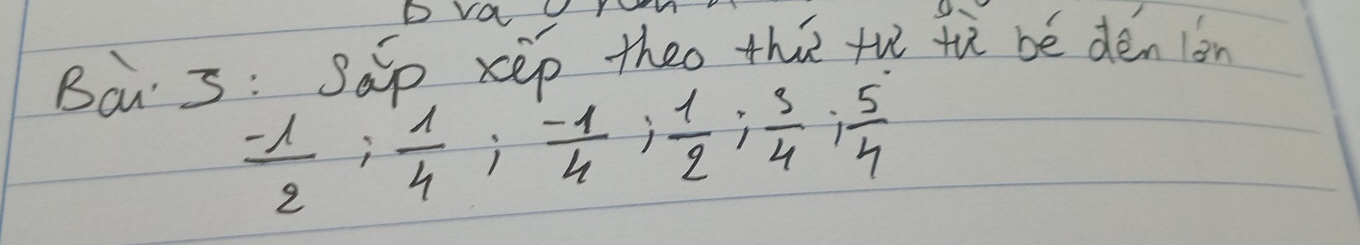 Bài 3: Sắp xếp theo thứ tự từ bé đến lớn
-1/2 ; 1/4 ; -1/4 ; 1/2 ; 3/4 ; 5/4